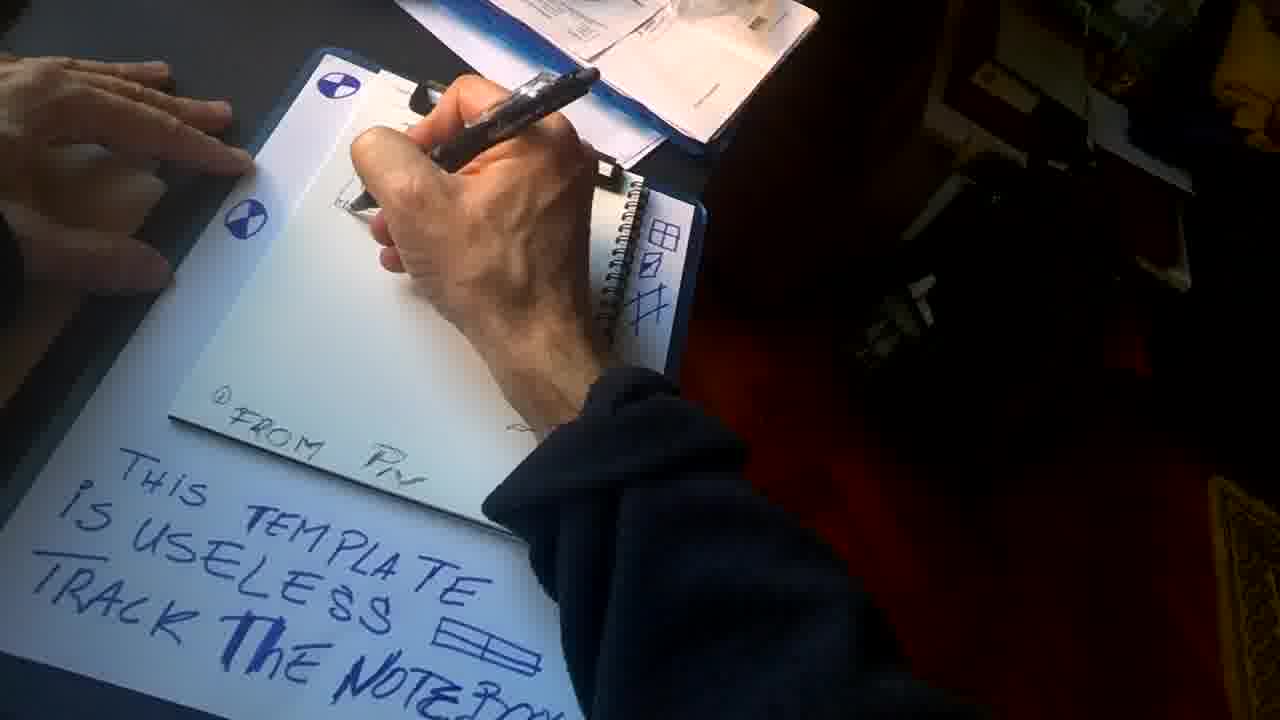 ① FROM
THIS TEMPLATE
iS USELESS
TRACK THE NOTEBOO